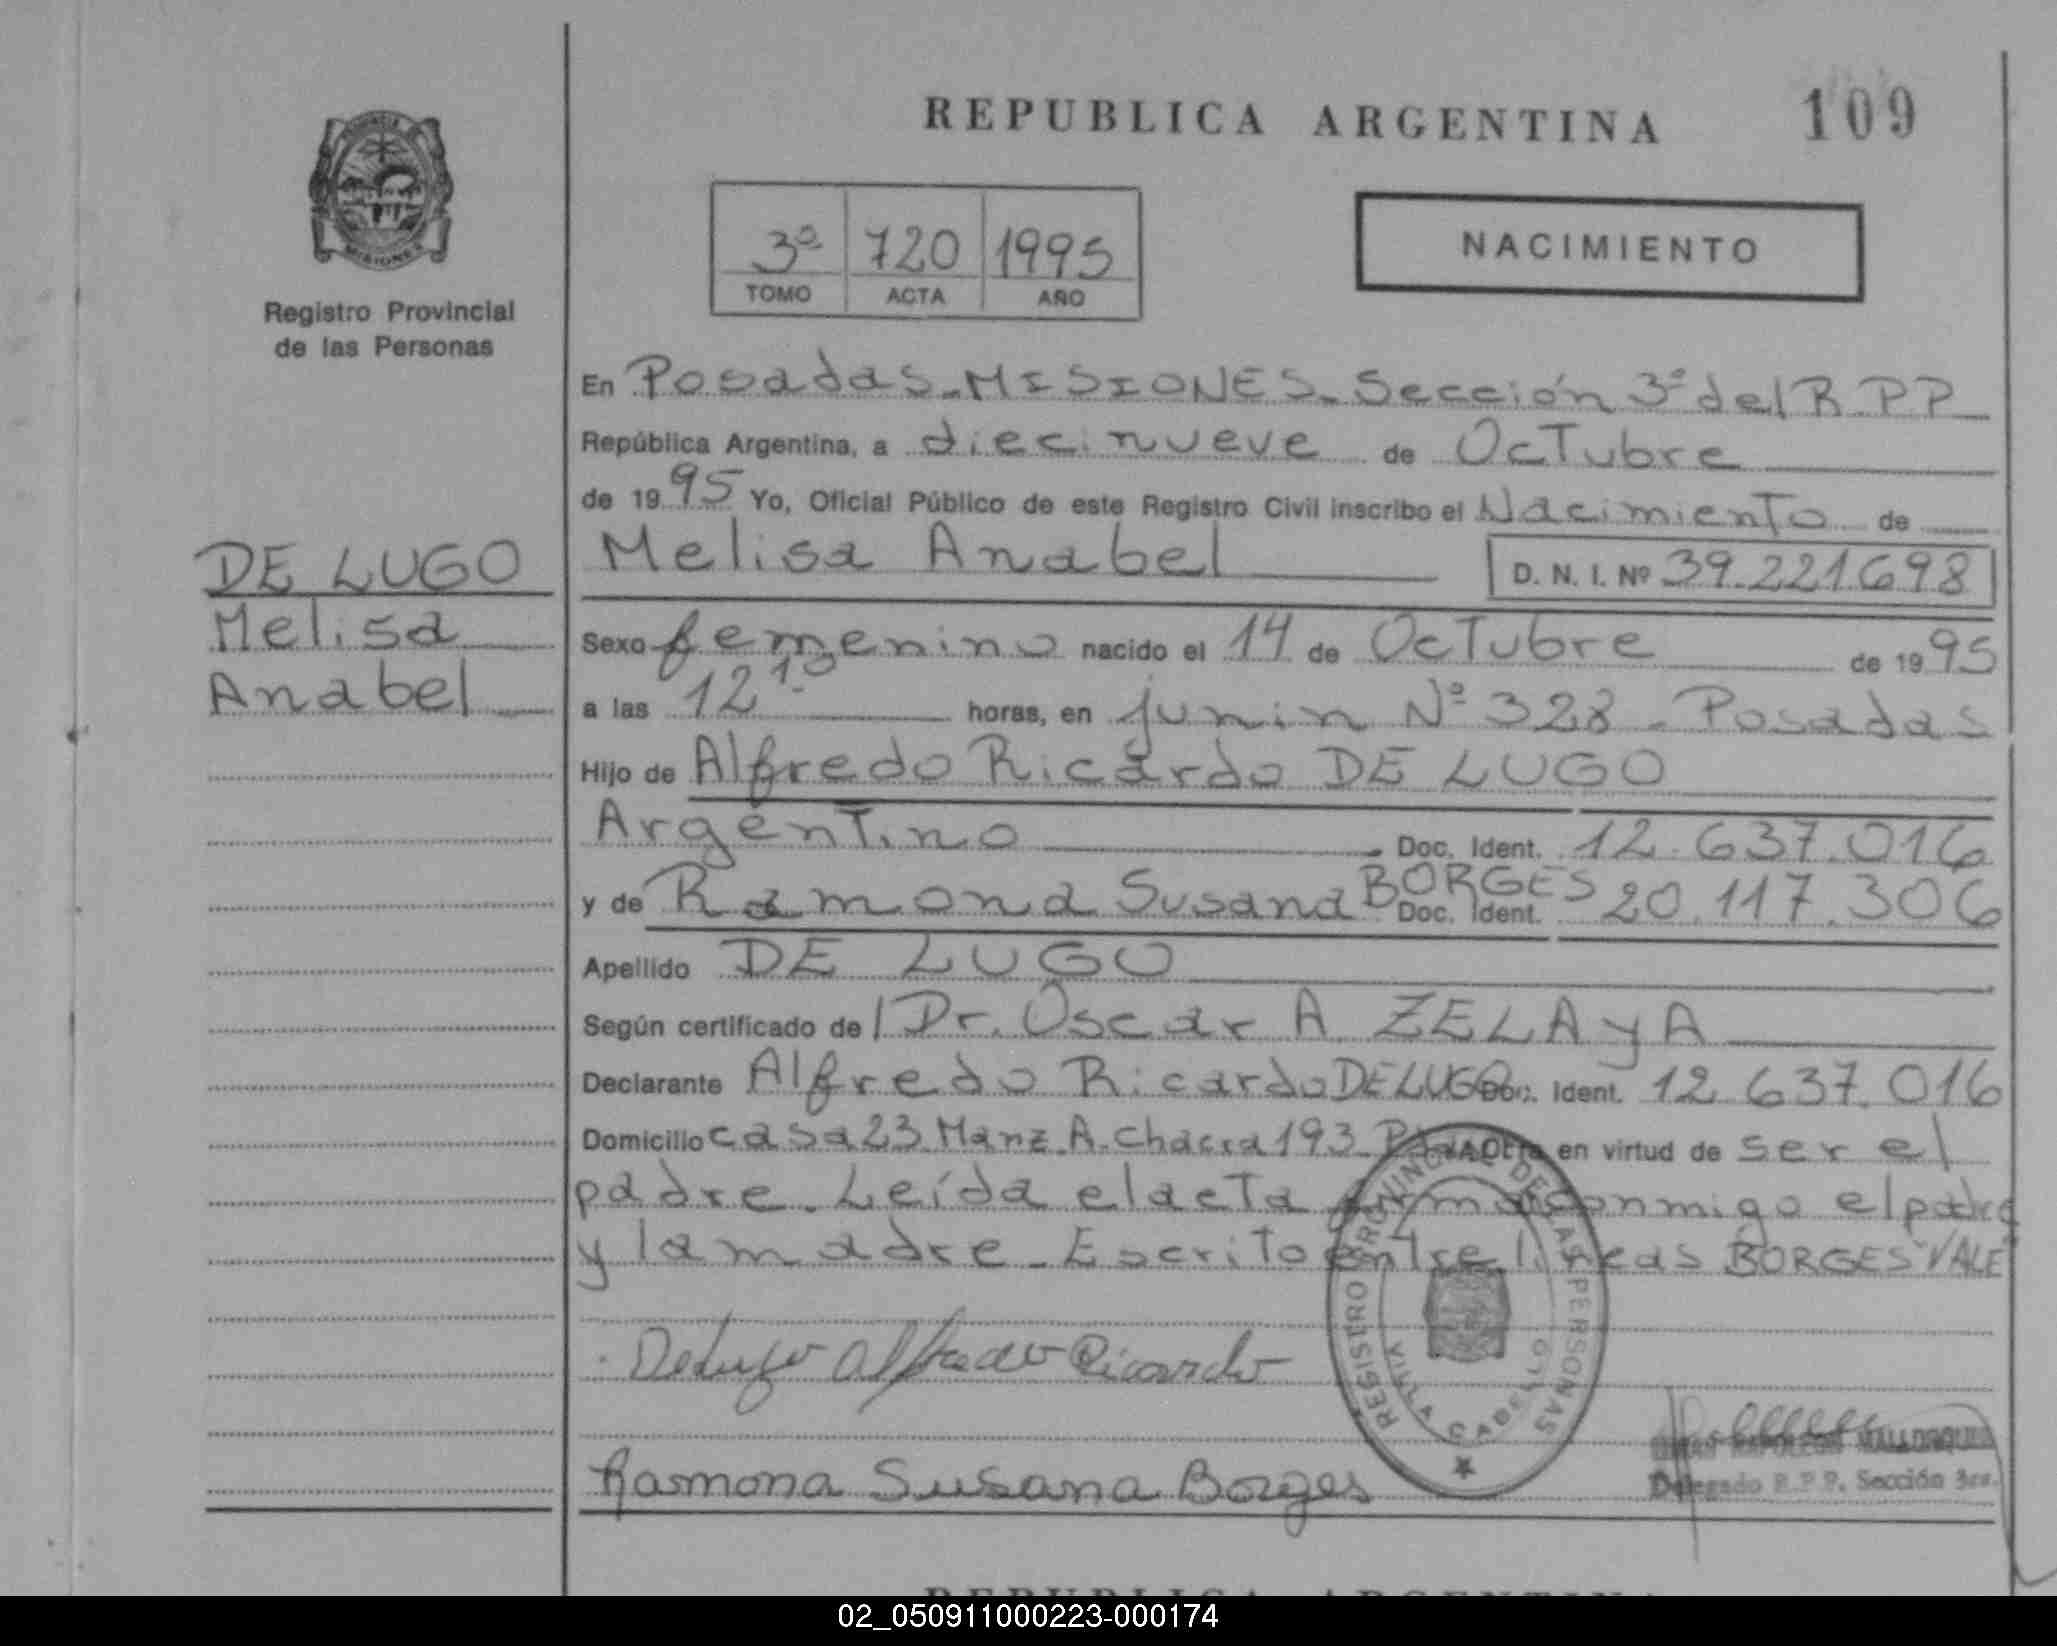 REPUBLICA ARGENTINA 109
PROVINCIA DE MISIONES
Registro Provincial
de las Personas
3º 720 1995
TOMO ACTA AÑO
NACIMIENTO
En Posadas-MISIONES-Sección 3ª del R.P.P
República Argentina, a diecinueve de Octubre
de 1995 Yo, Oficial Público de este Registro Civil inscribo el Nacimiento de
DE LUGO
Melisa
Anabel
Melisa Anabel D. N. I. Nº 39.221.698
Sexo femenino nacido el 14 de Octubre de 1995
a las 12 10 horas, en junin Nº 328 - Posadas
Hijo de Alfredo Ricardo DE LUGO
Argentino Doc. Ident. 12.637.016
y de Ramona Susana BORGES Doc. Ident. 20.117.306
Apellido DE LUGO
Según certificado del Dr. Oscar A ZELAyA
Declarante Alfredo Ricardo DE LUGO Doc. Ident. 12.637.016
Domicilio casa 23 Manz. A. Chacra 193 en virtud de ser el
padre. Leída el acta firma conmigo el padre
y la madre - Escrito entre lineas BORGES "VALE"
Delugo Alfredo Ricardo
Ramona Susana Borges
REGISTRO PROVINCIAL DE LAS PERSONAS
VILLA CABELLO
Delegado R.P.P. Sección 3ra.
REPUBLICA ARGENTINA
02_050911000223-000174